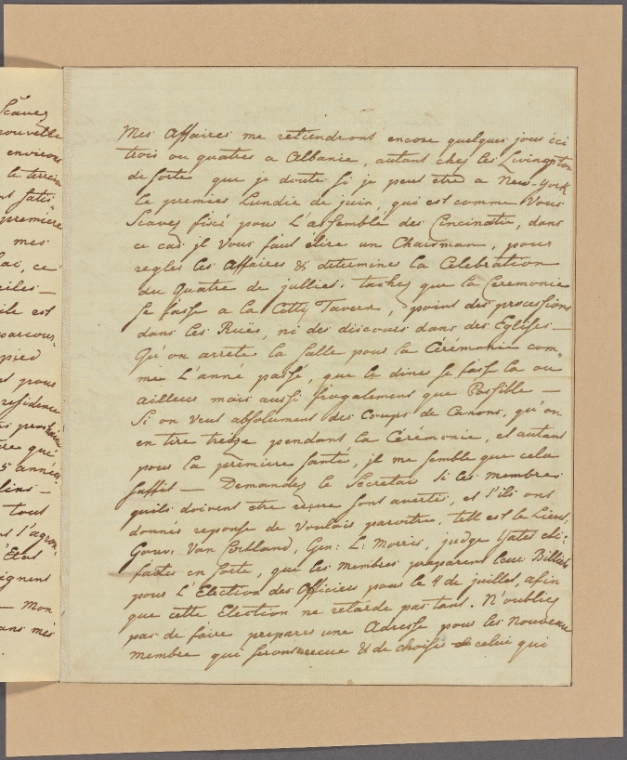 Scavez
nouvelle
environ
le terrein
nt satis
premiere
mes
lai, ce
eiles —
ile est
parcour
pied
et pour
residence
tre que
5 année
lins —
tout
t l'agron
l'Etat
ignent
— Mon
ans mes
Mes affaires me retiendront encore quelques jour ici
trois ou quatres a Albanie, autant chez les Livingston
de sorte que je doute si je peut etre a New-York
le premier Lundie de juin, qui est comme Vous
Scavez fixé pour L'assemblé des Cincinatie, dans
ce cas jl vous faut elire un Chairman, pour
regler les Affaires & determiner la Celebration
du Quatre de julliet. taches que la Ceremonie
se fasse a la Citty Tavern, point des processions
dans les Rues, ni des discours dans des Eglises —
Qu'on arrete la salle pour la Cérémonie com-
me L'anné passé, que le diner se fasse la ou
ailleurs mais aussi frugalement que Possible —
Si on veut absolument des Coups de Canons, qu'on
en tire tredze pendant la Cérémonie, et autant
pour la premiere santé, jl me semble que cela
suffit — Demandez le Secretair si les membres
quils doivent etre reçue sont avertis, et s'ils ont
donnés reponse de Vouloir paroitre, tell est le Lieut,
Gouv: Van Cortland, Gen: L: Morris, judge Yates etc:
faites en sorte, que les membres preparent leur Billiets
pour L'Election des Officiers pour le 4 de juillet, afin
que cette Election ne retarde pas tant. N'oubliez
pas de faire preparer une Adresse pour les Nouveau
membre qui seront recue & de choisir celui qui